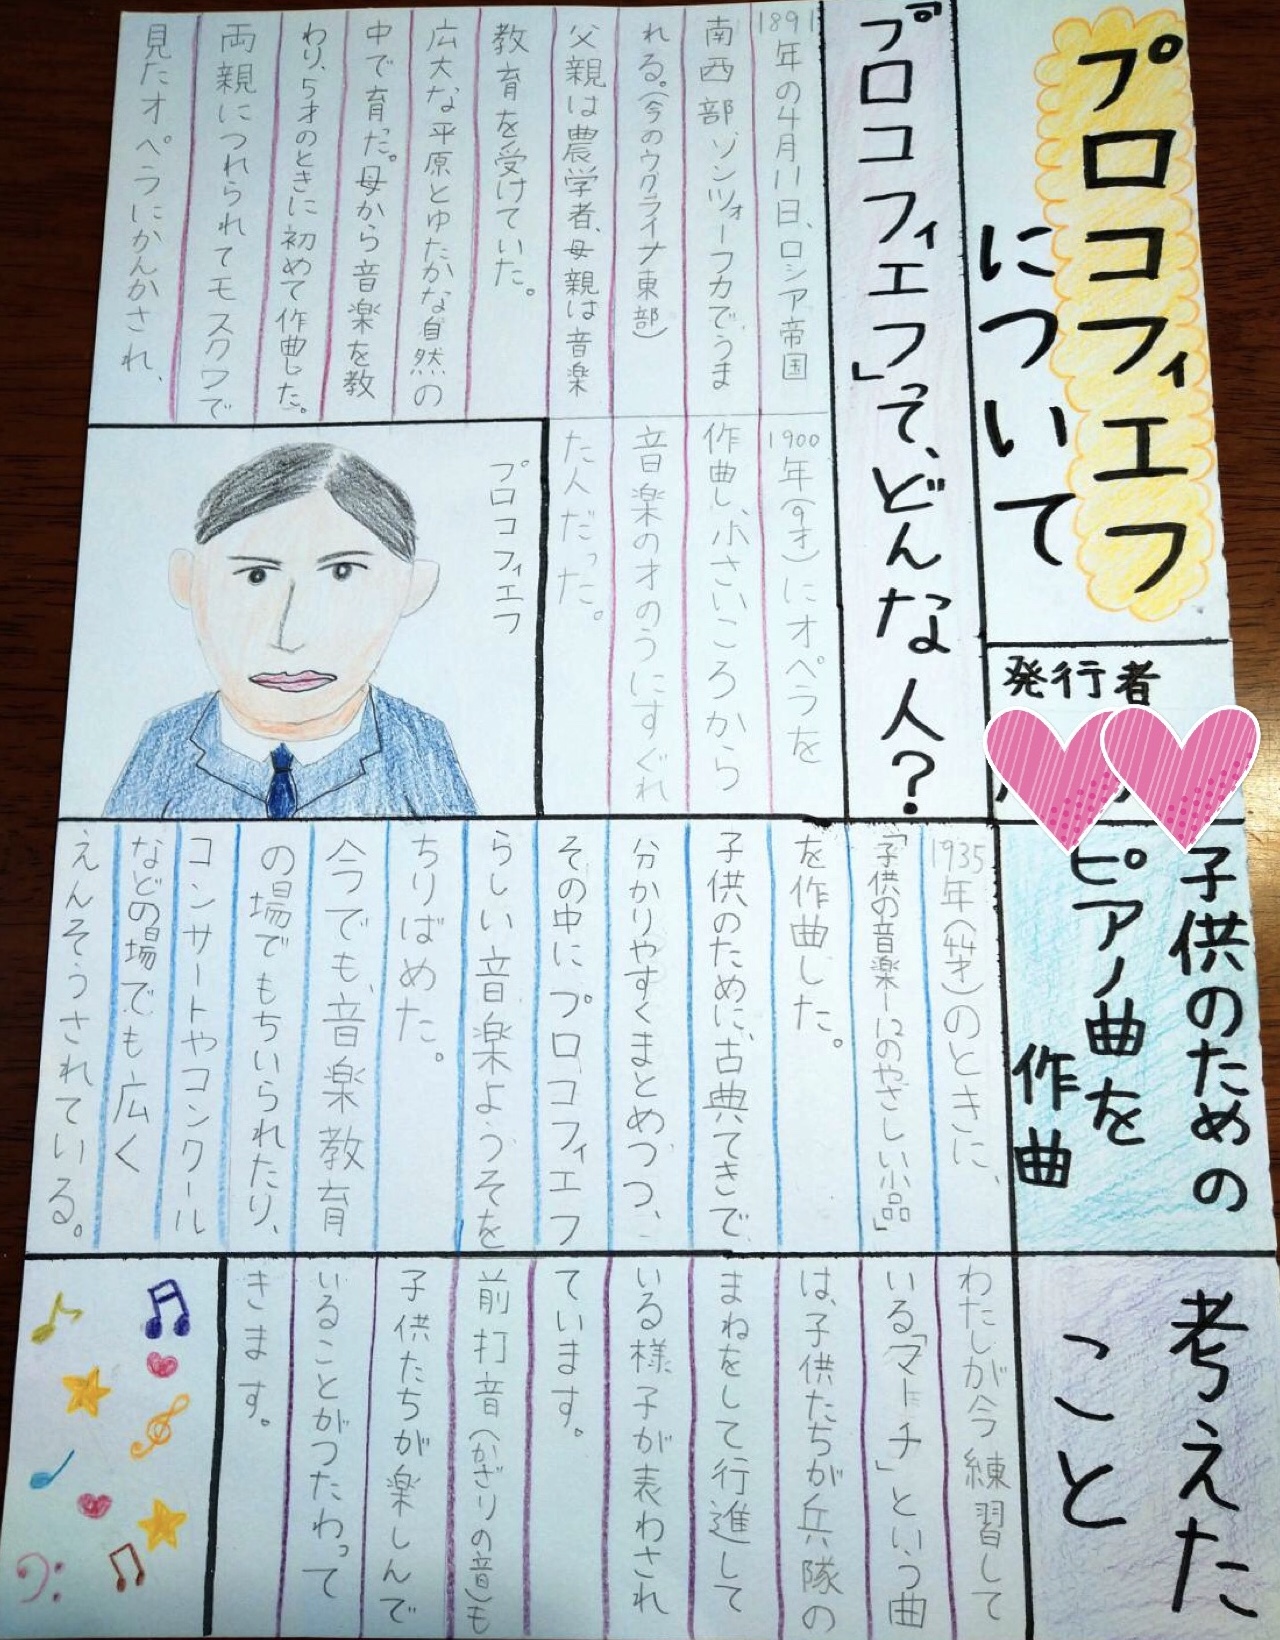 プロコフィエフ
について
発行者
「プロコフィエフ」って、どんな人？
1891年の4月11日、ロシア帝国
南西部、ソンツォーフカでうま
れる。(今のウクライナ東部)
父親は農学者、母親は音楽
教育を受けていた。
広大な平原とゆたかな自然の
中で育た。母から音楽を教
わり、5才のときに初めて作曲した。
両親につれられてモスクワで
見たオペラにかんかされ、
1900年(9才)にオペラを
作曲し、小さいころから
音楽の才のうにすぐれ
た人だった。
プロコフィエフ
子供のための
ピアノ曲を
作曲
1935年(44才)のときに、
「子供の音楽ー12のやさしい小品」
を作曲した。
子供のために、古典てきで
分かりやすくまとめつつ、
その中にプロコフィエフ
らしい音楽ようそを
ちりばめた。
今でも、音楽教育
の場でもちいられたり、
コンサートやコンクール
などの場でも広く
えんそうされている。
考えた
こと
わたしが今練習して
いる「マーチ」という曲
は、子供たちが兵隊の
まねをして行進して
いる様子が表わされ
ています。
前打音(かざりの音)も
子供たちが楽しんで
いることがつたわって
きます。